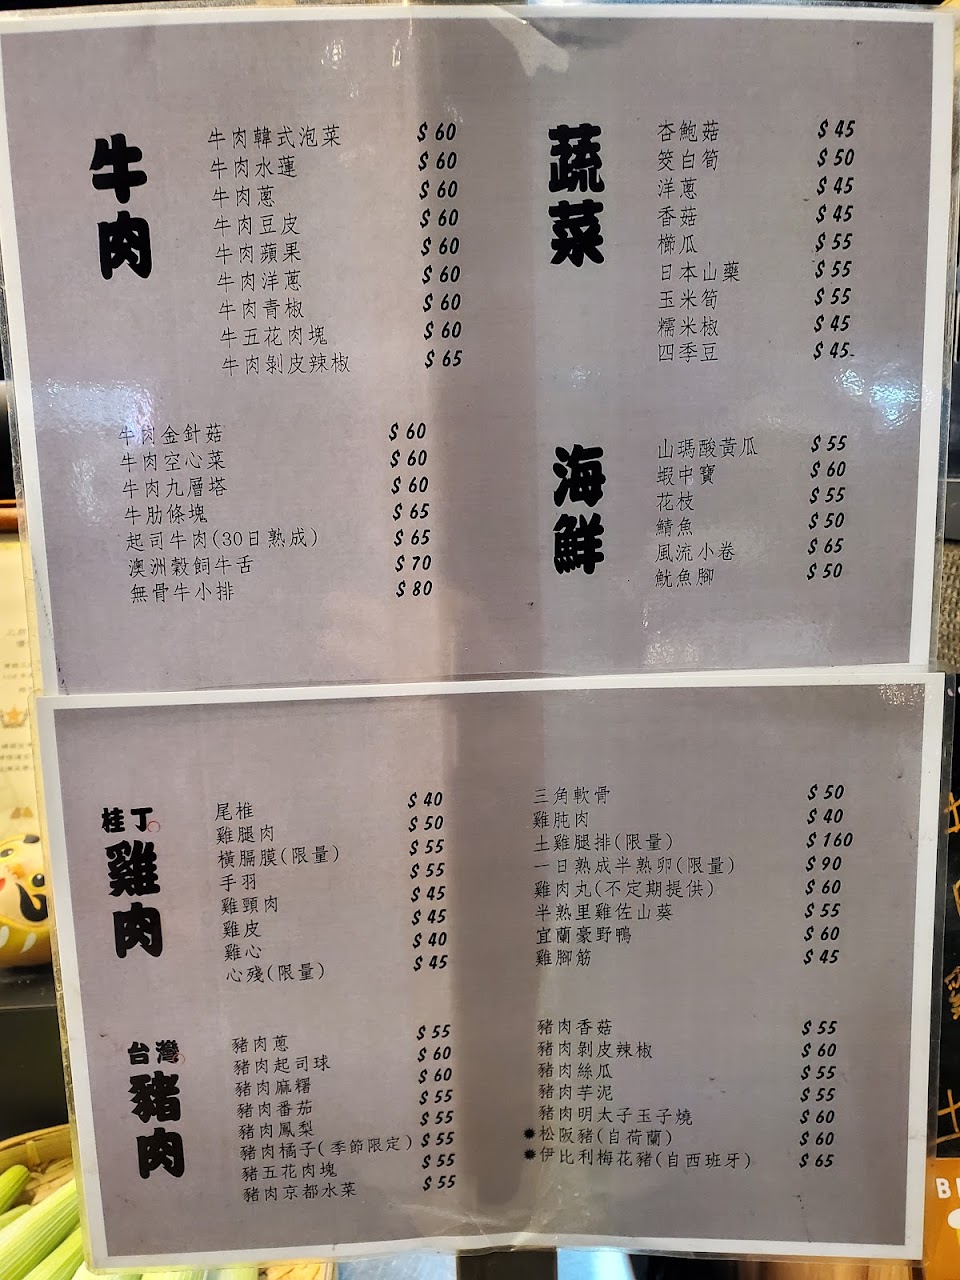 牛肉
牛肉韓式泡菜 $60
牛肉水蓮 $60
牛肉蔥 $60
牛肉豆皮 $60
牛肉蘋果 $60
牛肉洋蔥 $60
牛肉青椒 $60
牛五花肉塊 $60
牛肉剝皮辣椒 $65
牛肉金針菇 $60
牛肉空心菜 $60
牛肉九層塔 $60
牛肋條塊 $65
起司牛肉(30日熟成) $65
澳洲穀飼牛舌 $70
無骨牛小排 $80
蔬菜
杏鮑菇 $45
筊白筍 $50
洋蔥 $45
香菇 $45
櫛瓜 $55
日本山藥 $55
玉米筍 $55
糯米椒 $45
四季豆 $45
海鮮
山瑪酸黃瓜 $55
蝦中寶 $60
花枝 $55
鯖魚 $50
風流小卷 $65
魷魚腳 $50
桂丁
雞肉
尾椎 $40
雞腿肉 $50
橫膈膜(限量) $55
手羽 $55
雞頸肉 $45
雞皮 $45
雞心 $40
心殘(限量) $45
三角軟骨 $50
雞肫肉 $40
土雞腿排(限量) $160
一日熟成半熟卵(限量) $90
雞肉丸(不定期提供) $60
半熟里雞佐山葵 $55
宜蘭豪野鴨 $60
雞腳筋 $45
台灣
豬肉
豬肉蔥 $55
豬肉起司球 $60
豬肉麻糬 $60
豬肉番茄 $55
豬肉鳳梨 $55
豬肉橘子(季節限定) $55
豬五花肉塊 $55
豬肉京都水菜 $55
豬肉香菇 $55
豬肉剝皮辣椒 $60
豬肉絲瓜 $55
豬肉芋泥 $55
豬肉明太子玉子燒 $60
松阪豬(自荷蘭) $60
伊比利梅花豬(自西班牙) $65